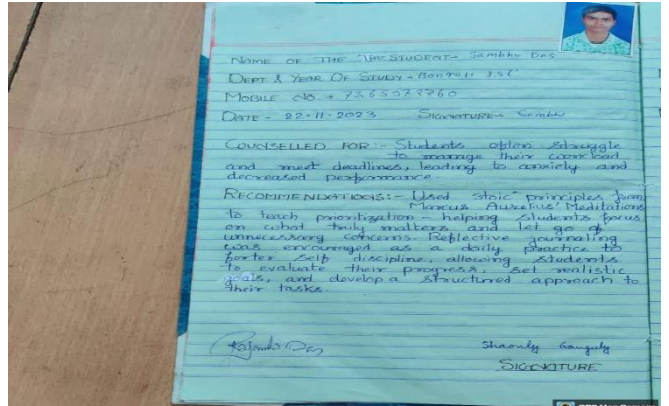 NAME OF THE STUDENT- Sambhu Das
DEPT & YEAR OF STUDY -
MOBILE NO. -
DATE - 22-11-2023 SIGNATURE- Sambhu
COUNSELLED FOR :- Students often struggle
to manage their workload
and meet deadlines, leading to anxiety and
decreased performance.
RECOMMENDATIONS:- Used Stoic principles from
Marcus Aurelius' Meditations
to teach prioritization - helping students focus
on what truly matters and let go of
unnecessary concerns. Reflective journaling
was encouraged as a daily practice to
forter self discipline, allowing students
to evaluate their progress, set realistic
goals, and develop a structured approach to
their tasks
Das Shaonly Ganguly
SIGNATURE